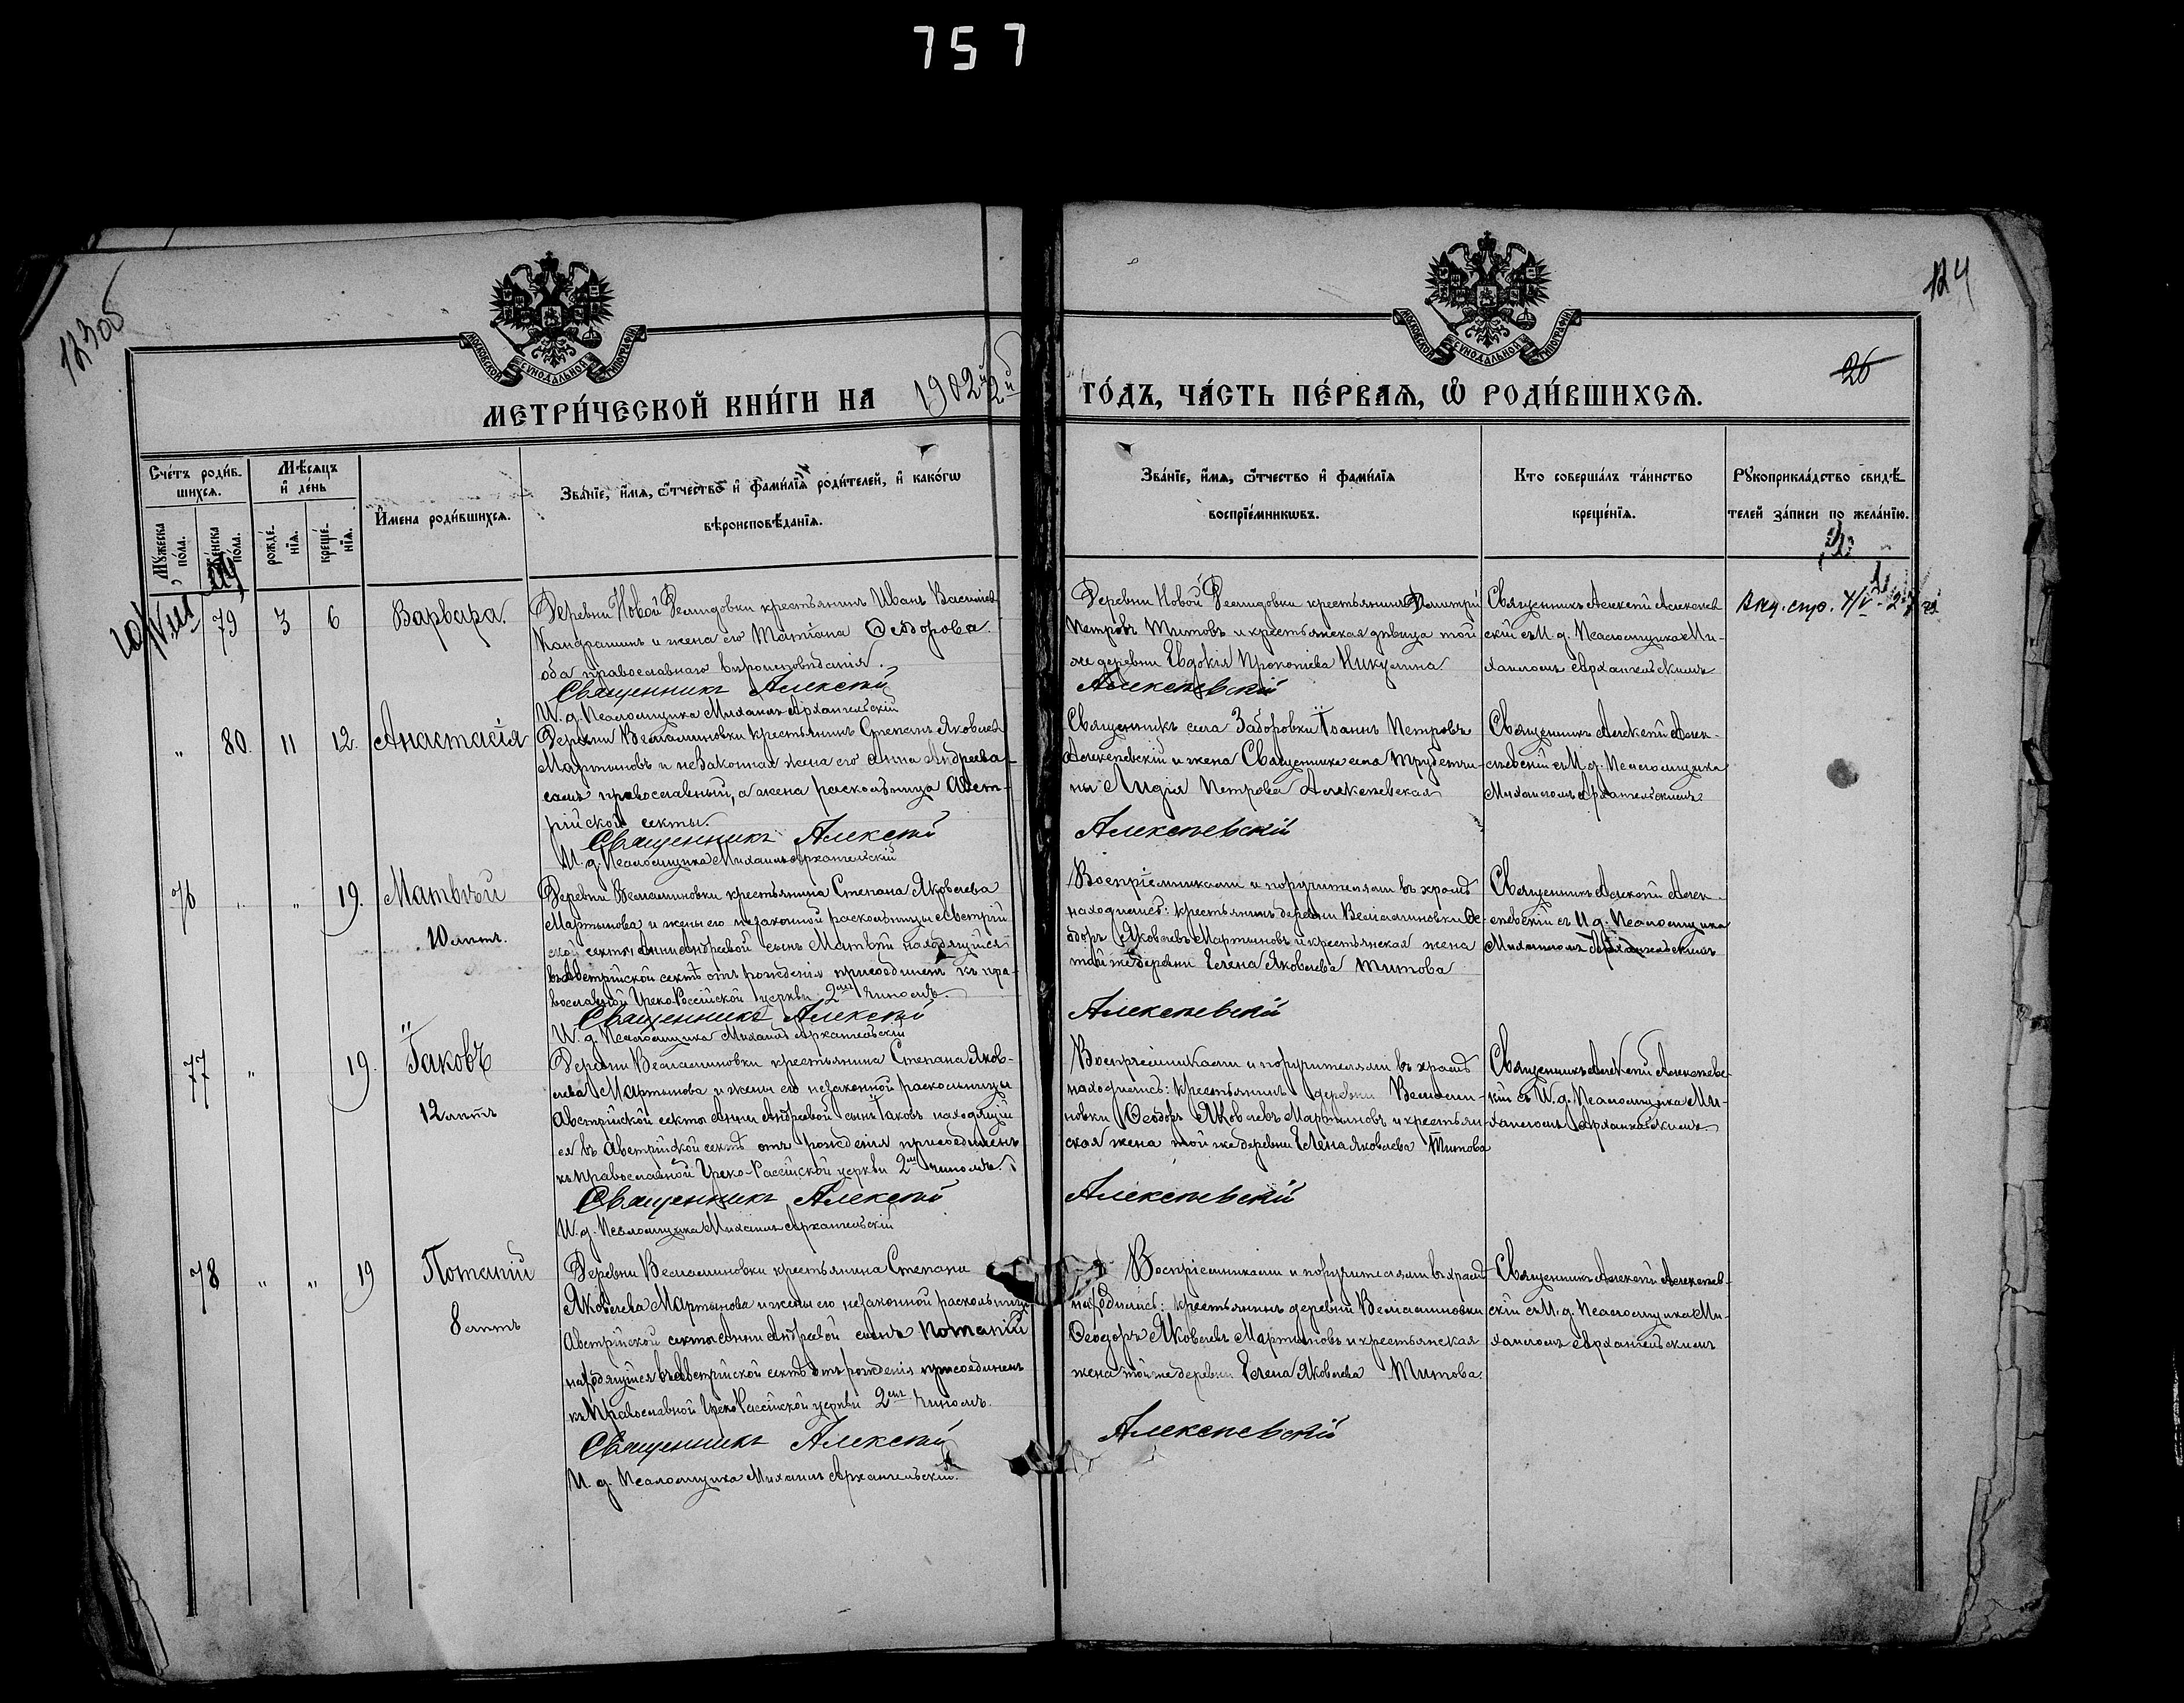 757
123об
124
26
МОСКОВСКОЙ СУНОДАЛЬНОЙ ТИПОГРАФІИ
МОСКОВСКОЙ СУНОДАЛЬНОЙ ТИПОГРАФІИ
МЕТРИ́ЧЕСКОЙ КНИ́ГИ НА 1902й
ГО́ДЪ, ЧА́СТЬ ПЕ́РВАѦ, Ѡ҆ РОДИ́ВШИХСѦ.
Сче́тъ роди́в-
шихсѧ.
Мѣ́сѧцъ
и҆ де́нь
Му́жеска по́ла.
Же́нска по́ла.
рожде́-
нїѧ.
креще́-
нїѧ.
И҆мена роди́вшихсѧ.
Зва́нїе, и҆́мѧ, ѻ҆́тчество и҆ фами́лїѧ роди́телей, и҆ како́гѡ
вѣроисповѣ́данїѧ.
Зва́нїе, и҆́мѧ, ѻ҆́тчество и҆ фами́лїѧ
воспрїе́мникѡвъ.
Кто соверша́лъ та́инство
креще́нїѧ.
Рꙋкоприкла́дство свидѣ́-
телей за́писи по жела́нїю.
79 3 6 Варвара.
Деревни Новой Демидовки крестьянинъ Иванъ Васильевъ
Кандрашинъ и жена его Татіана Ѳеодорова.
оба православнаго вѣроисповѣданія.
Священникъ Алексѣй
И. д. Псаломщика Михаилъ Архангельскій
Деревни Новой Демидовки крестьянинъ Димитрій
Петровъ Титовъ и крестьянская дѣвица той
же деревни Евдокія Прокопіева Никулина
Алексѣевскій
Священникъ Алексѣй Алексѣев-
скій съ И. д. Псаломщика Ми-
хаиломъ Архангельскимъ
" 80. 11 12. Анастасія
Деревни Вельяминовки крестьянинъ Стефанъ Яковлевъ
Мартыновъ и незаконная жена его Анна Андреева
самъ православный, а жена раскольница Авст-
рійской секты.
Священникъ Алексѣй
И. д. Псаломщика Михаилъ Архангельскій
Священникъ села Заборовки Іоаннъ Петровъ
Алексѣевскій и жена Священника села Трубетчи-
ны Лидія Петрова Алексѣевская
Алексѣевскій
Священникъ Алексѣй Алек-
сѣевскій съ И. д. Псаломщика
Михаиломъ Архангельскимъ
76 " " 19. Матвѣй
10 лѣтъ.
Деревни Вельяминовки крестьянина Степана Яковлева
Мартынова и жены его незаконной раскольницы Австрій-
ской секты Анны Андреевой сынъ Матвѣй находящійся
въ Австрійской сектѣ отъ рожденія присоединенъ къ пра-
вославной Греко-Россійской церкви 2мъ чиномъ.
Священникъ Алексѣй
И. д. Псаломщика Михаилъ Архангельскій
Воспріемниками и поручителями въ храмѣ
находились: крестьянинъ деревни Вельяминовки Ѳе-
одоръ Яковлевъ Мартыновъ и крестьянская жена
той же деревни Елена Яковлева Титова
Алексѣевскій
Священникъ Алексѣй Алек-
сѣевскій съ И. д. Псаломщика
Михаиломъ Архангельскимъ
77 " 19. Іаковъ
12 лѣтъ
Деревни Вельяминовки крестьянина Степана Яков-
лева Мартынова и жены его незаконной раскольницы
Австрійской секты Анны Андреевой сынъ Іаковъ находящій-
ся въ Австрійской сектѣ отъ рожденія присоединенъ
къ православной Греко-Россійской церкви 2мъ чиномъ.
Священникъ Алексѣй
И. д. Псаломщика Михаилъ Архангельскій
Воспріемниками и поручителями въ храмѣ
находились: крестьянинъ деревни Вельями-
новки Ѳеодоръ Яковлевъ Мартыновъ и крестьян-
ская жена той же деревни Елена Яковлева Титова
Алексѣевскій
Священникъ Алексѣй Алексѣевс-
кій съ И. д. Псаломщика Ми-
хаиломъ Архангельскимъ
78 " " 19 Потапій
8 лѣтъ
Деревни Вельяминовки крестьянина Степана
Яковлева Мартынова и жены его незаконной раскольницы
Австрійской секты Анны Андреевой сынъ Потапій
находящійся въ Австрійской сектѣ отъ рожденія присоединенъ
къ Православной Греко Россійской церкви 2мъ чиномъ.
Священникъ Алексѣй
И. д. Псаломщика Михаилъ Архангельскій.
Воспріемниками и поручителями въ храмѣ
находились: крестьянинъ деревни Вельяминовки
Ѳеодоръ Яковлевъ Мартыновъ и крестьянская
жена той же деревни Елена Яковлева Титова.
Алексѣевскій
Священникъ Алексѣй Алексѣев-
скій съ И. д. Псаломщика Ми-
хаиломъ Архангельскимъ